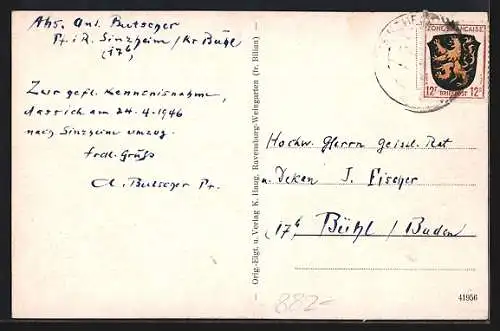 Abs. Ant. Butscher
Pf. i. R. Sinzheim / Kr Bühl
(17b)
Zur gefl. Kenntnisnahme,
dass ich am 24-4-1946
nach Sinzheim umzog.
frdl. Gruß
A. Butscher Pf.
Orig.-Eigt. u. Verlag K. Haug, Ravensburg-Weingarten (fr. Bilian)
ZONE FRANÇAISE
12F BRIEFPOST 12PF
Hochw. Herrn geistl. Rat
u. Dekan J. Fischer
17b Bühl / Baden
41956
882-